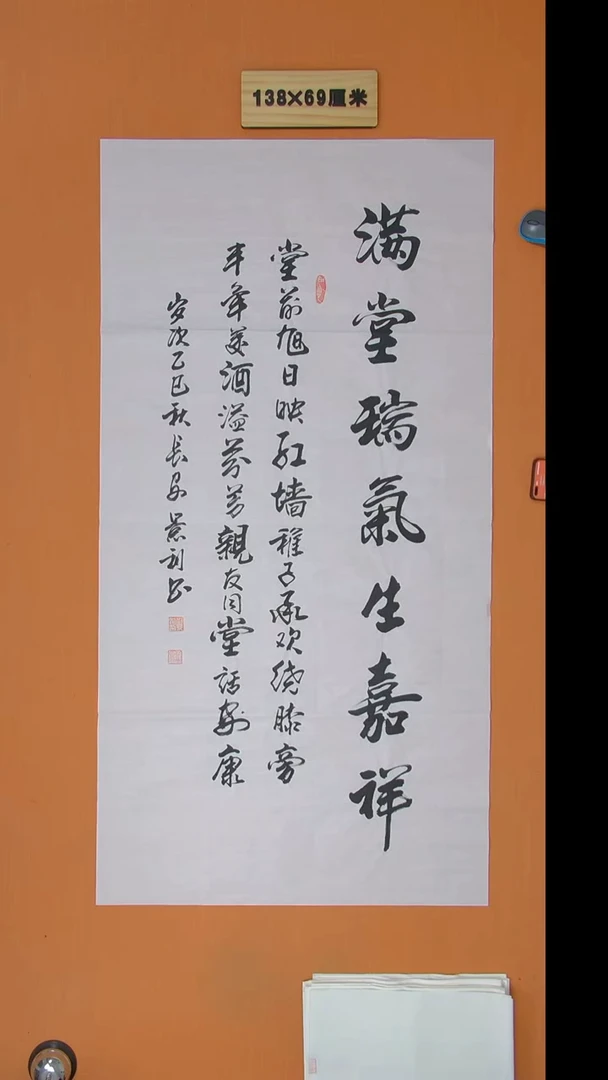 138×69厘米
满堂瑞氣生嘉祥
堂前旭日映红墙稚子承欢绕膝旁
丰年美酒溢芬芳親友同堂話安康
岁次乙巳秋长安景利书